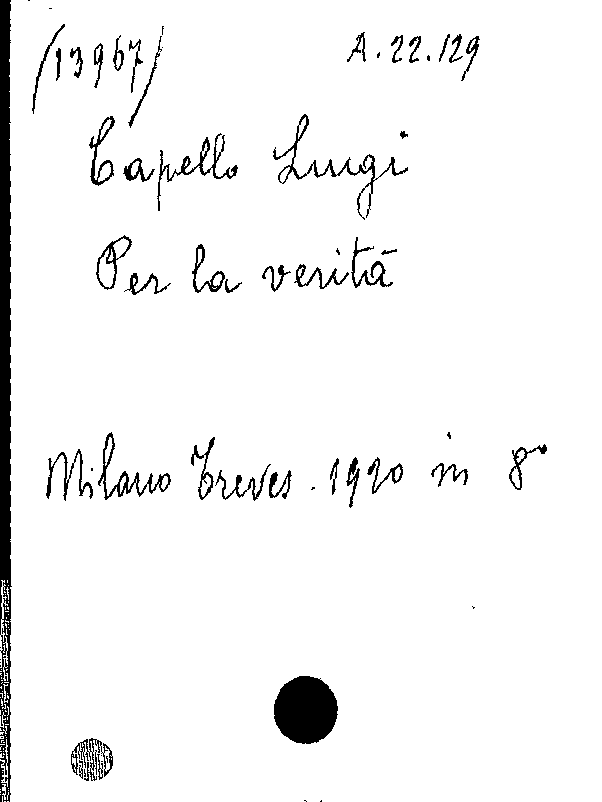 (13967) A.22.129
Capello Luigi
Per la verità
Milano Treves. 1920 in 8°